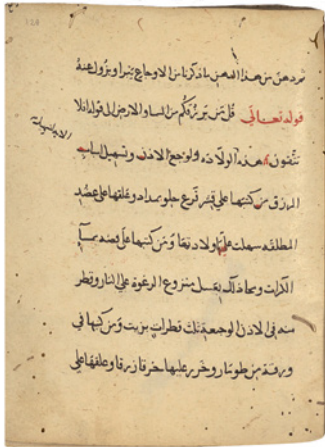 ثم دهن من هذا الدهن ما ذكرنا من الاوجاع تبرا ويزول عنه
قوله تعالى قل من يرزقكم من السماء والارض الى قوله افلا
تتقون هذه الولاده ولوجع الاذن وتسهيل اسباب
الرزق من كتبها على قشر قرع حلو بمداد وعلقها على عضد
المطلقه سهلت عليها ولادتها ومن كتبها على فضه بماء
الكراث ومحا ذلك بعسل منزوع الرغوة على النار وقطر
منه فى الاذن الوجعه ثلث قطرات بزيت ومن كتبها فى
ورقة من طومار وخرز عليها خرقا زرقا وعلقها على